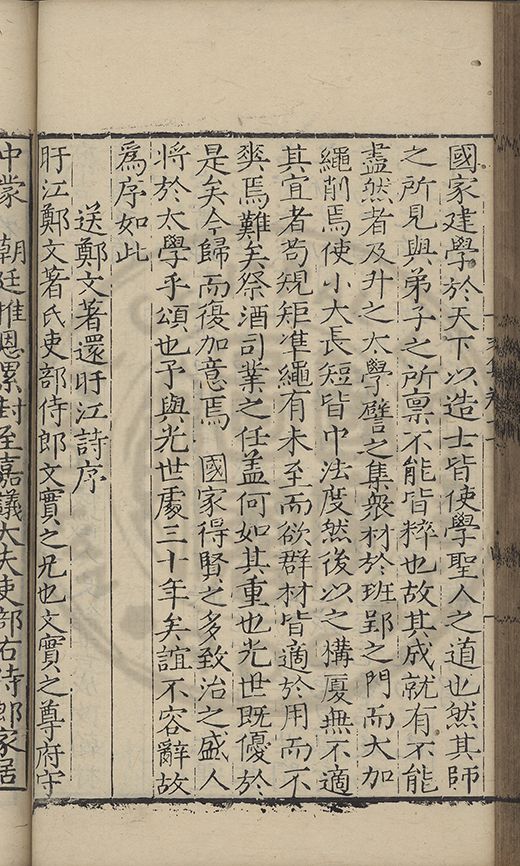 國家建學於天下以造士皆使學聖人之道也然其師
之所見與弟子之所禀不能皆粹也故其成就有不能
盡然者及升之太學譬之集衆材於班郢之門而大加
繩削焉使小大長短皆中法度然後以之搆厦無不適
其宜者苟規矩準繩有未至而欲群材皆適於用而不
爽焉難矣祭酒司業之任盖何如其重也光世既優於
是矣今歸而復加意焉 國家得賢之多致治之盛人
將於太學乎頌也予與光世處三十年矣誼不容辭故
爲序如此
送鄭文著還盱江詩序
盱江鄭文著氏吏部侍郎文實之兄也文實之尊府守
中蒙 朝廷推恩累封至嘉議大夫吏部右侍郎家居